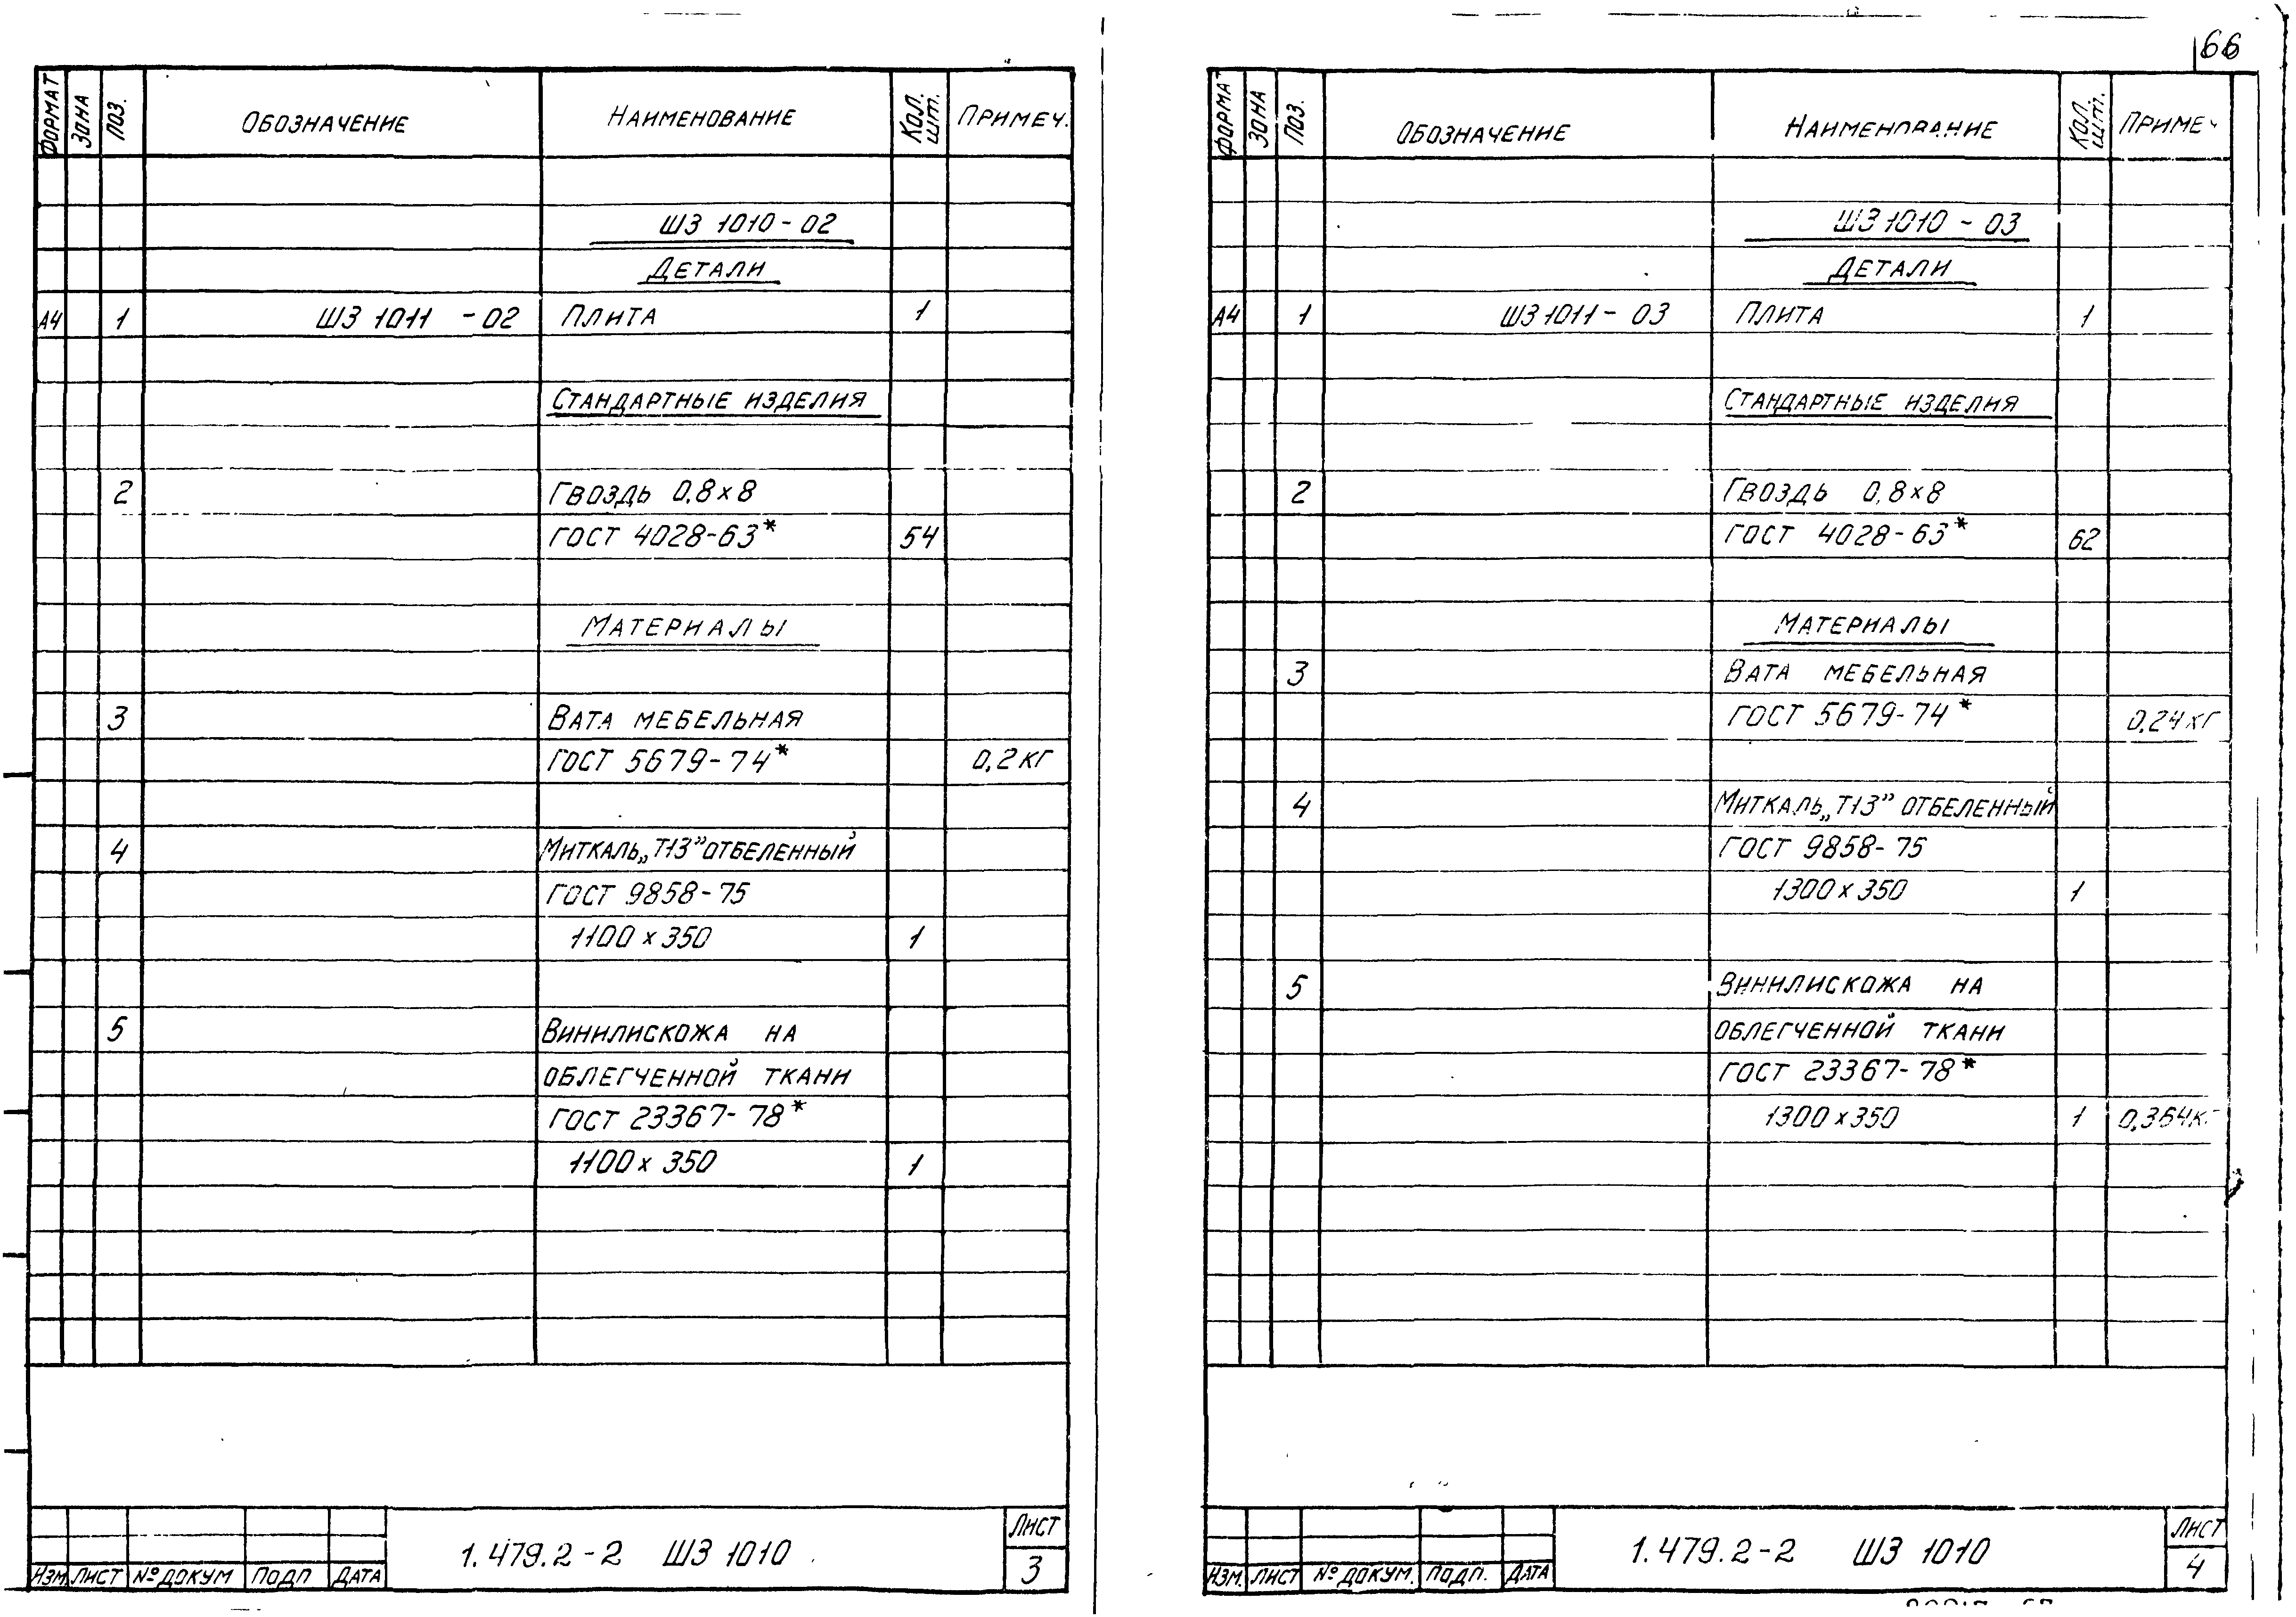 66
ФОРМАТ ЗОНА ПОЗ. ОБОЗНАЧЕНИЕ НАИМЕНОВАНИЕ КОЛ. ШТ. ПРИМЕЧ.
ШЗ 1010-02
ДЕТАЛИ
А4 1 ШЗ 1011 -02 ПЛИТА 1
СТАНДАРТНЫЕ ИЗДЕЛИЯ
2 ГВОЗДЬ 0,8×8
ГОСТ 4028-63* 54
МАТЕРИАЛЫ
3 ВАТА МЕБЕЛЬНАЯ
ГОСТ 5679-74* 0,2 КГ
4 МИТКАЛЬ „Т-13” ОТБЕЛЕННЫЙ
ГОСТ 9858-75
1100 × 350 1
5 ВИНИЛИСКОЖА НА
ОБЛЕГЧЕННОЙ ТКАНИ
ГОСТ 23367-78*
1100 × 350 1
ИЗМ ЛИСТ № ДОКУМ ПОДП ДАТА
1.479.2-2 ШЗ 1010
ЛИСТ
3
ФОРМА ЗОНА ПОЗ. ОБОЗНАЧЕНИЕ НАИМЕНОВАНИЕ КОЛ. ШТ. ПРИМЕЧ
ШЗ 1010 - 03
ДЕТАЛИ
А4 1 ШЗ 1011 - 03 ПЛИТА 1
СТАНДАРТНЫЕ ИЗДЕЛИЯ
2 ГВОЗДЬ 0,8×8
ГОСТ 4028-63* 62
МАТЕРИАЛЫ
3 ВАТА МЕБЕЛЬНАЯ
ГОСТ 5679-74* 0,24 КГ
4 МИТКАЛЬ „Т-13” ОТБЕЛЕННЫЙ
ГОСТ 9858-75
1300 × 350 1
5 ВИНИЛИСКОЖА НА
ОБЛЕГЧЕННОЙ ТКАНИ
ГОСТ 23367-78*
1300 × 350 1 0,364 КГ
ИЗМ. ЛИСТ № ДОКУМ. ПОДП. ДАТА
1.479.2-2 ШЗ 1010
ЛИСТ
4